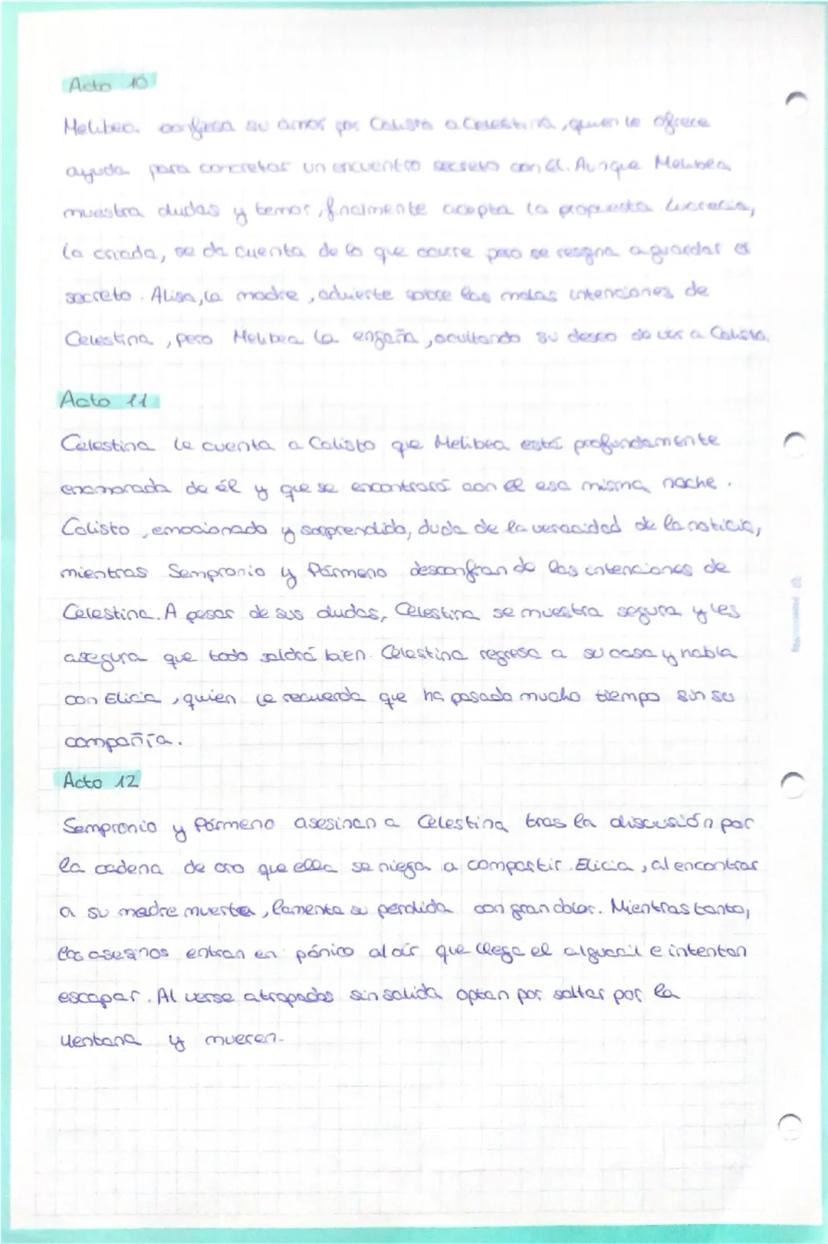 Acto 10
Melibea confiesa su amor por Calisto a Celestina, quien le ofrece
ayuda para concretar un encuentro secreto con él. Aunque Melibea
muestra dudas y temor, finalmente acepta la propuesta Lucrecia,
la criada, se da cuenta de lo que ocurre pero se resigna a guardar el
secreto. Alisa, la madre, advierte sobre las malas intenciones de
Celestina, pero Melibea la engaña, ocultando su deseo de ver a Calisto.
Acto 11
Celestina le cuenta a Calisto que Melibea está profundamente
enamorada de él y que se encontrará con él esa misma noche.
Calisto, emocionado y sorprendido, duda de la veracidad de la noticia,
mientras Sempronio y Pármeno desconfían de las intenciones de
Celestina. A pesar de sus dudas, Celestina se muestra segura y les
asegura que todo saldrá bien. Celestina regresa a su casa y habla
con Elicia, quien le recuerda que ha pasado mucho tiempo sin su
compañía.
Acto 12
Sempronio y Pármeno asesinan a Celestina tras la discusión por
la cadena de oro que ella se niega a compartir. Elicia, al encontrar
a su madre muerta, lamenta su perdida con gran dolor. Mientras tanto,
los asesinos entran en pánico al oír que llega el alguacil e intentan
escapar. Al verse atrapados sin salida optan por saltar por la
ventana y mueren.